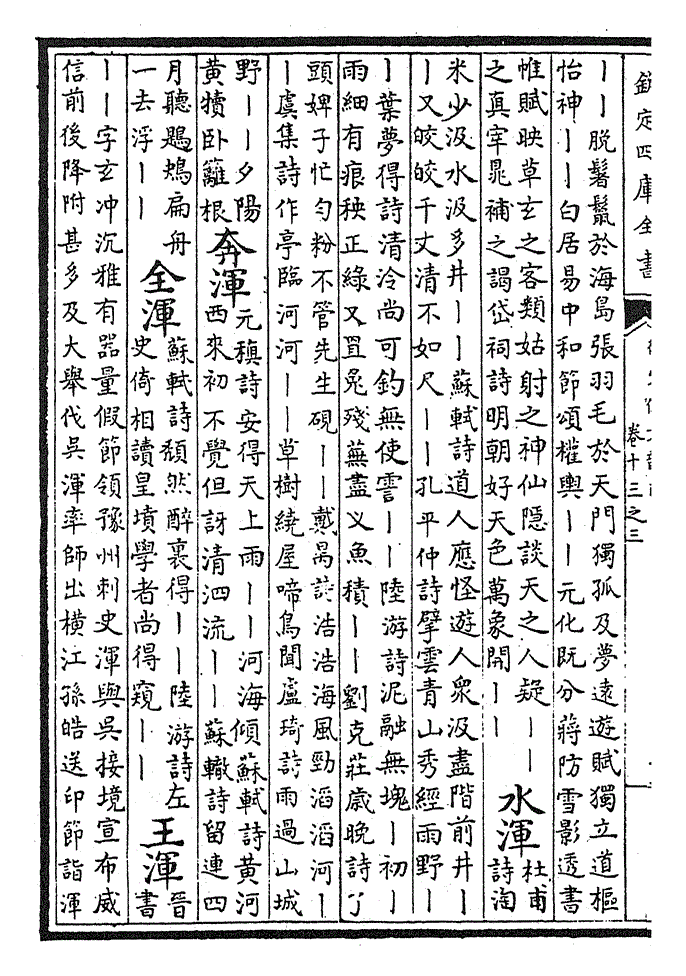 欽定四庫全書
卷十三之三
丨丨脫鬐鬣於海島張羽毛於天門獨孤及夢遠遊賦獨立道樞
怡神丨丨白居易中和節頌權輿丨丨元化既分蔣防雪影透書
帷賦映草玄之客類姑射之神仙隱談天之人疑丨丨
之真宰晁補之謁岱祠詩明朝好天色萬象開丨丨
水渾
杜甫
詩淘
米少汲水汲多井丨丨蘇軾詩道人應怪遊人衆汲盡階前井丨
丨又皎皎千丈清不如尺丨丨孔平仲詩擘雲青山秀經雨野丨
丨葉夢得詩清泠尚可釣無使雲丨丨陸游詩泥融無塊丨初丨
雨細有痕秧正綠又罝兔殘蕪盡乂魚積丨丨劉克莊歲晚詩了
頭婢子忙勻粉不管先生硯丨丨戴昺詩浩浩海風勁滔滔河丨
丨虞集詩作亭臨河河丨丨草樹繞屋啼鳥聞盧琦詩雨過山城
野丨丨夕陽
黃犢臥籬根
奔渾
元稹詩安得天上雨丨丨河海傾蘇軾詩黃河
西來初不覺但訝清泗流丨丨蘇轍詩留連四
月聽鶗鴂扁舟
一去浮丨丨
全渾
蘇軾詩頹然醉裏得丨丨陸游詩左
史倚相讀皇墳學者尚得窺丨丨
王渾
晉
書
丨丨字玄冲沉雅有器量假節領豫州刺史渾與吳接境宣布威
信前後降附甚多及大舉伐吳渾率師出橫江孫皓送印節詣渾